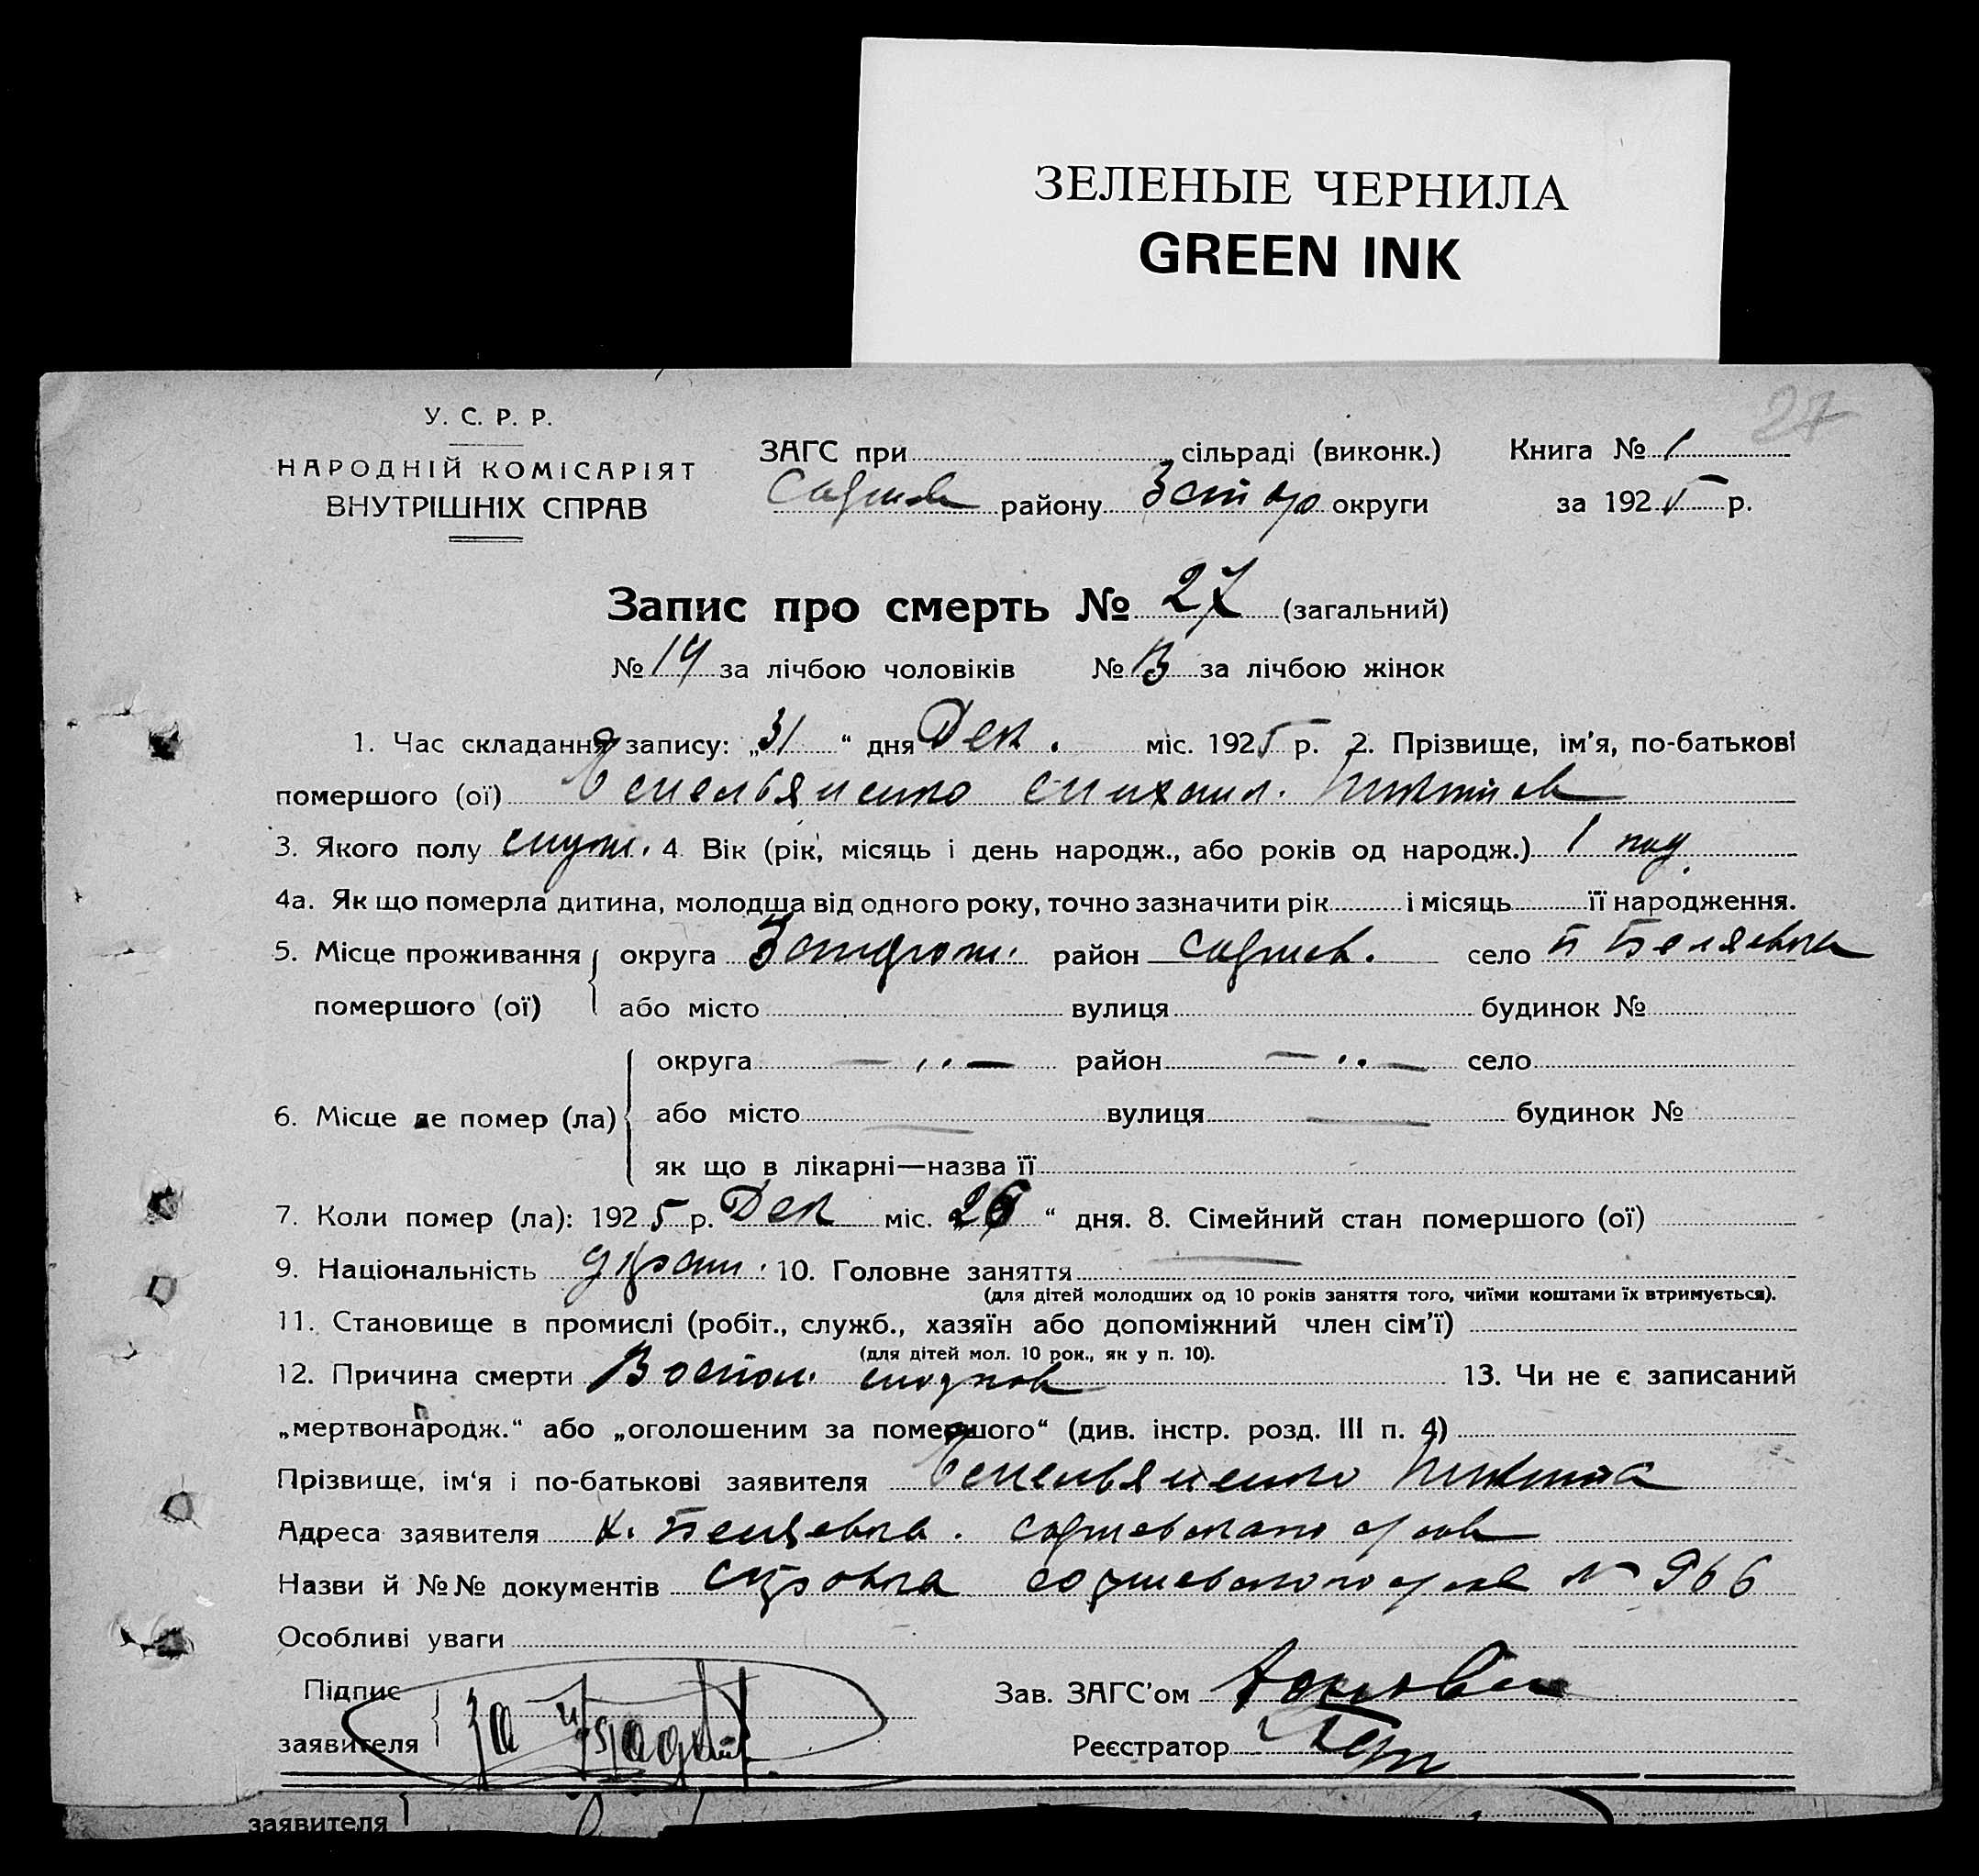 ЗЕЛЕНЫЕ ЧЕРНИЛА
GREEN INK
27
У. С. Р. Р.
НАРОДНІЙ КОМІСАРІЯТ
ВНУТРІШНІХ СПРАВ
ЗАГС при сільраді (виконк.)
району округи
Книга № 1
за 1925 р.
Запис про смерть № 27 (загальний)
№ 14 за лічбою чоловіків № 13 за лічбою жінок
1. Час складання запису: „31“ дня Дек. міс. 1925 р. 2. Прізвище, ім'я, по-батькові
помершого (ої) Емельяненко Михаил.
3. Якого полу муж. 4 Вік (рік, місяць і день народж., або років од народж.) 1 год
4а. Як що померла дитина, молодша від одного року, точно зазначити рік і місяць її народження.
5. Місце проживання округа район село Беляевка
помершого (ої) або місто вулиця будинок №
округа — „ — район — „ — село
6. Місце де помер (ла) або місто — вулиця — будинок №
як що в лікарні—назва її
7. Коли помер (ла): 1925 р. Дек міс. 26 “ дня. 8. Сімейний стан помершого (ої)
9. Національність украин. 10. Головне заняття —
(для дітей молодших од 10 років заняття того, чиїми коштами їх втримується).
11. Становище в промислі (робіт., служб., хазяїн або допоміжний член сім'ї)
(для дітей мол. 10 рок., як у п. 10).
12. Причина смерти Воспал. 13. Чи не є записаний
„мертвонародж.“ або „оголошеним за помершого“ (див. інстр. розд. III п. 4)
Прізвище, ім'я і по-батькові заявителя Емельяненко Никита
Адреса заявителя
Назви й №№ документів № 966
Особливі уваги
Підпис
заявителя
Зав. ЗАГС'ом
Реєстратор
заявителя